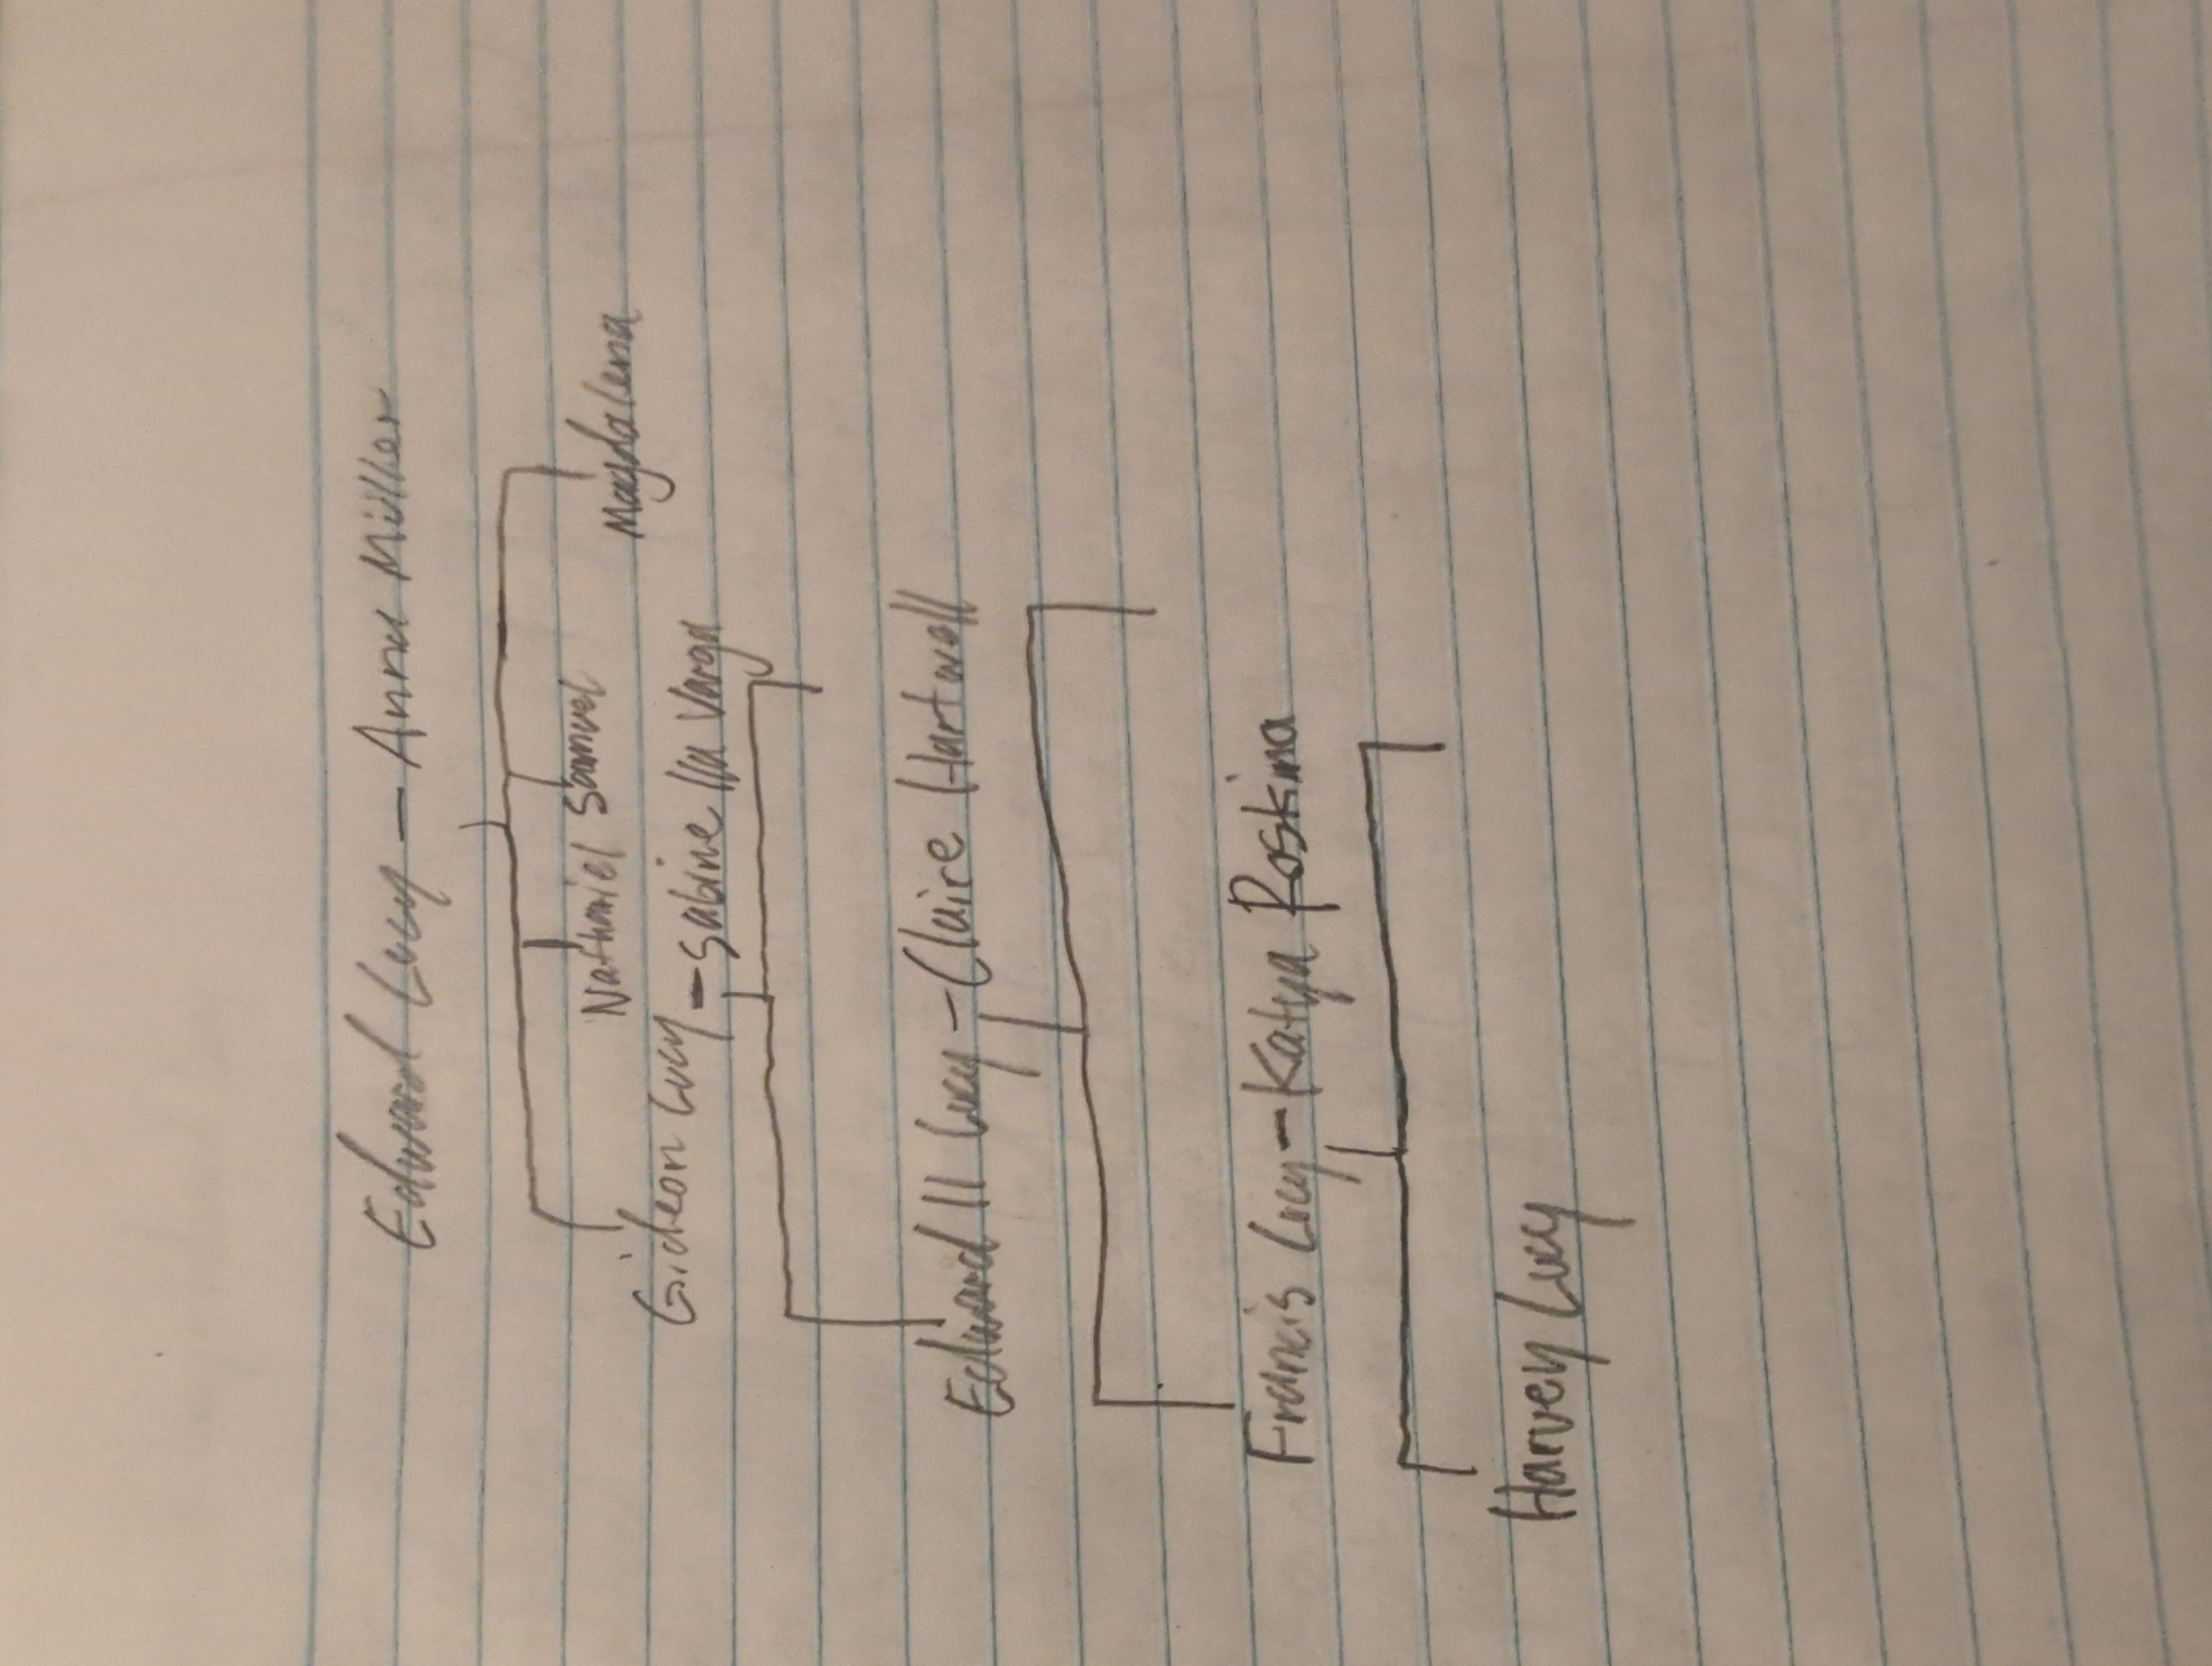 Edward Lucy - Anna Miller
Nathaniel Samuel Magdalena
Gideon Lucy - Sabine Varga
Edward II Lucy - Claire Hartwell
Francis Lucy - Katya Roskina
Harvey Lucy